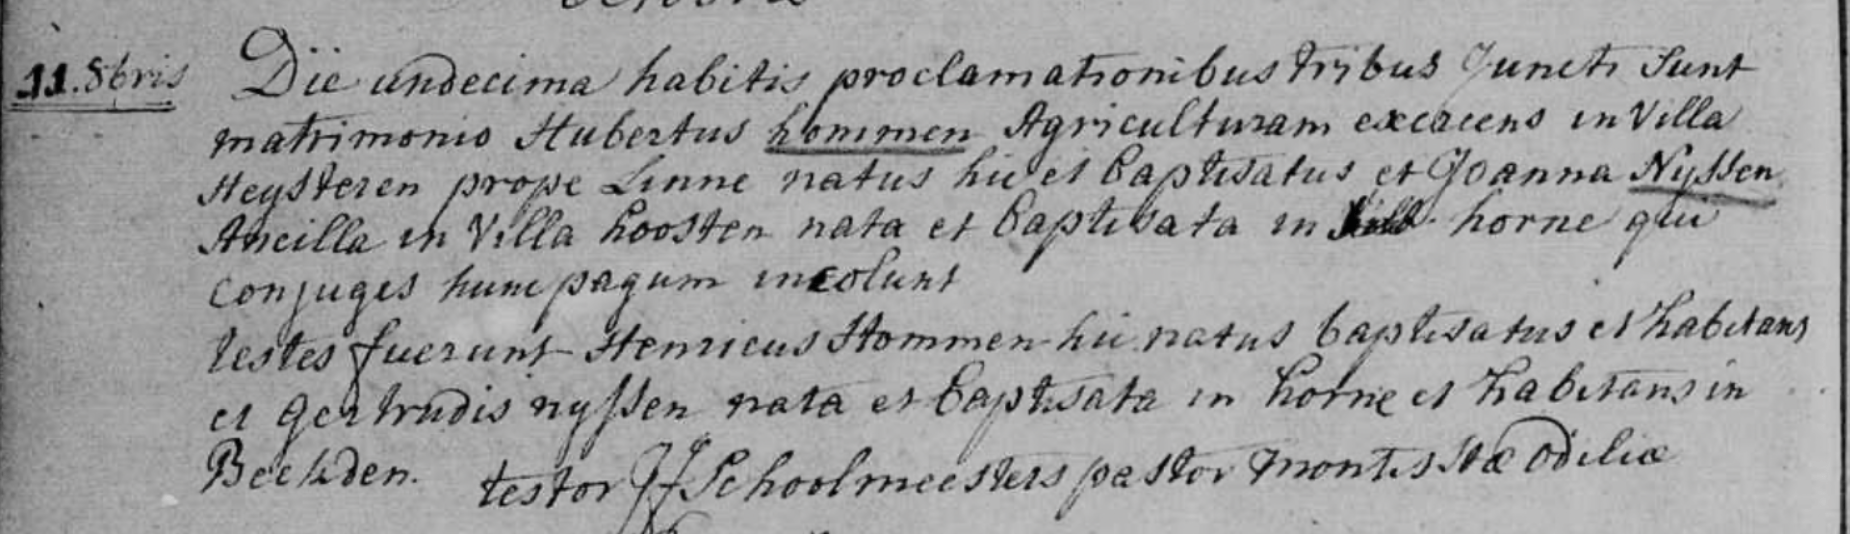 11. 8bris Die undecima habitis proclamationibus tribus Juncti Sunt
matrimonio Hubertus hommen Agriculturam exercens in Villa
Heysteren prope Linne natus hic et baptisatus et Joanna Nyssen
Ancilla in Villa hoosten nata et baptisata in horne qui
conjuges hunc pagum incolunt
testes fuerunt Henricus Hommen hic natus baptisatus et habitans
et gertrudis nyssen nata et baptisata in horne et habitans in
Beekden. testor Schoolmeesters pastor montis Stæ Odiliæ